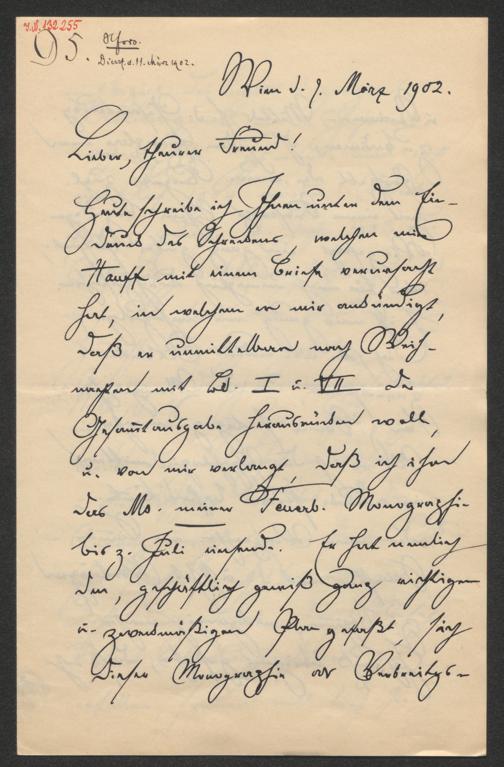 I.N. 132.255
95.
Dienst. d. 11. März 1902.
Wien d. 9. März 1902.
Lieber, theurer Freund!
Heute schreibe ich Ihnen unter dem Ein-
druck des Schreckens, welchen mir
Hauff mit einem Briefe verursacht
hat, in welchem er mir ankündigt,
daß er unmittelbar nach Weih-
nachten mit Bd. I u. VII der
Gesamtausgabe herausrücken woll,
u. von mir verlangt, daß ich ihm
das Ms. meiner Feuerb. Monographie
bis z. Juli einsende. Er hat nemlich
den, geschäftlich gewiß ganz richtigen
u. zweckmäßigen Plan gefaßt, sich
dieser Monographie als Verbreitgs-